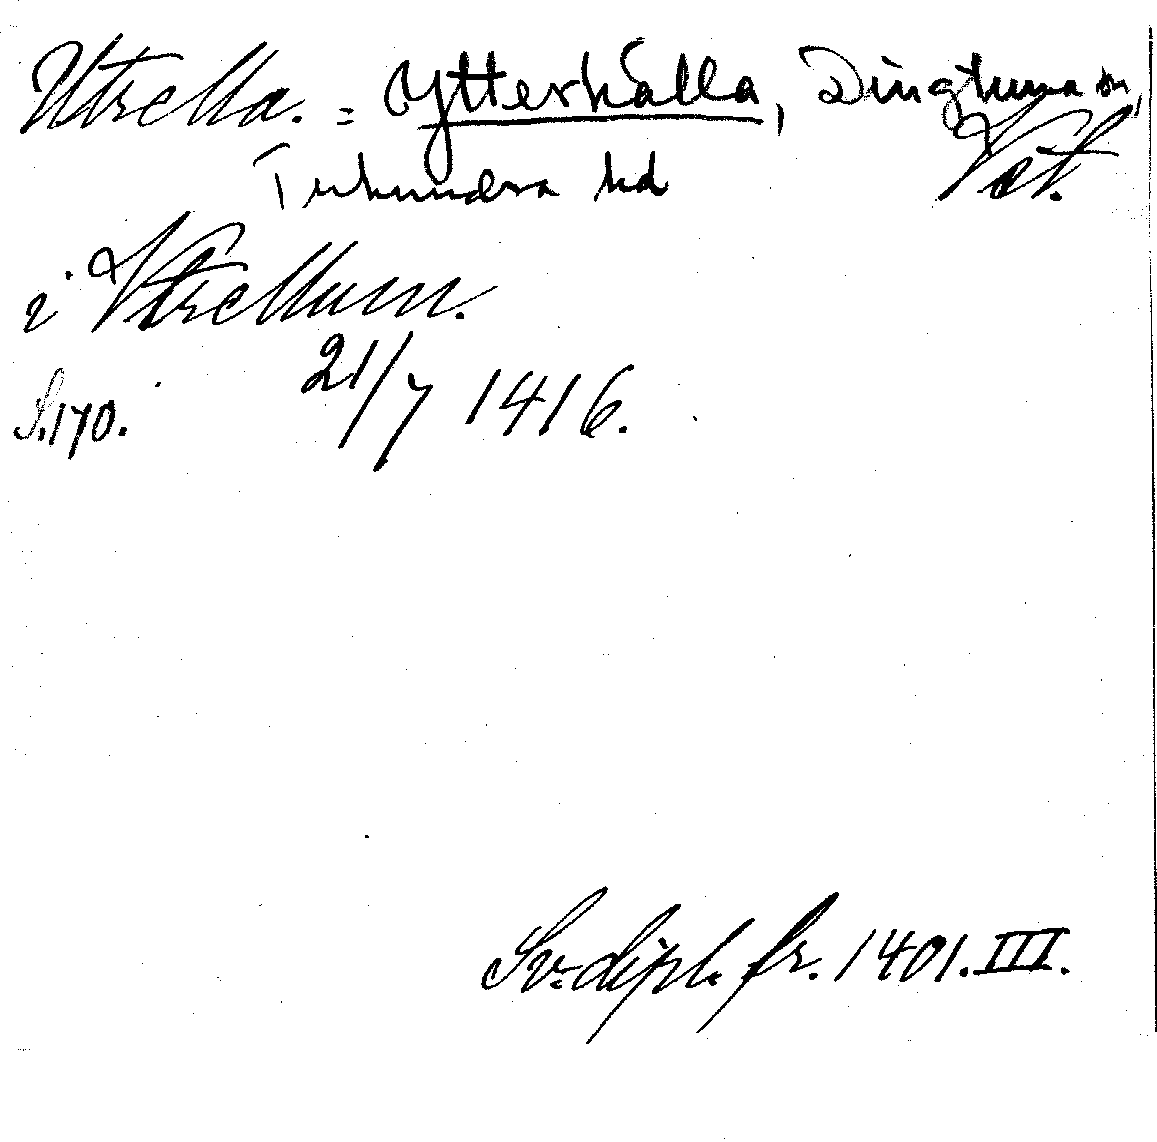 Utrella. = Ytterhälla, Dingtuna sn,
Tuhundra hd Vst.
i Vtrellum.
S. 170. 21/7 1416.
Sv. dipl. fr. 1401. III.